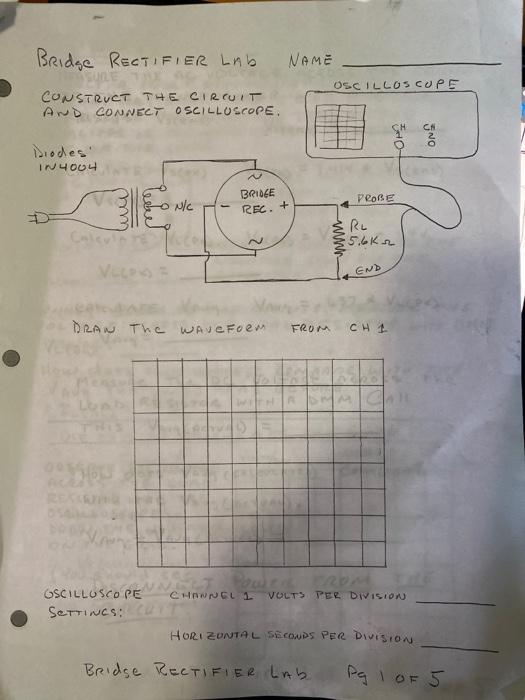 Bridge RECTIFIER Lab NAME
OSCILLOSCOPE
CONSTRUCT THE CIRCUIT
AND CONNECT OSCILLOSCOPE.
CH 1
CH 2
Diodes:
1N4004
N/C
~
- BRIDGE +
REC.
~
PROBE
RL
5.6KΩ
END
DRAW THE WAVEFORM FROM CH 1
OSCILLOSCOPE CHANNEL 1 VOLTS PER DIVISION
SETTINGS:
HORIZONTAL SECONDS PER DIVISION
Bridge RECTIFIER LAb Pg 1 OF 5